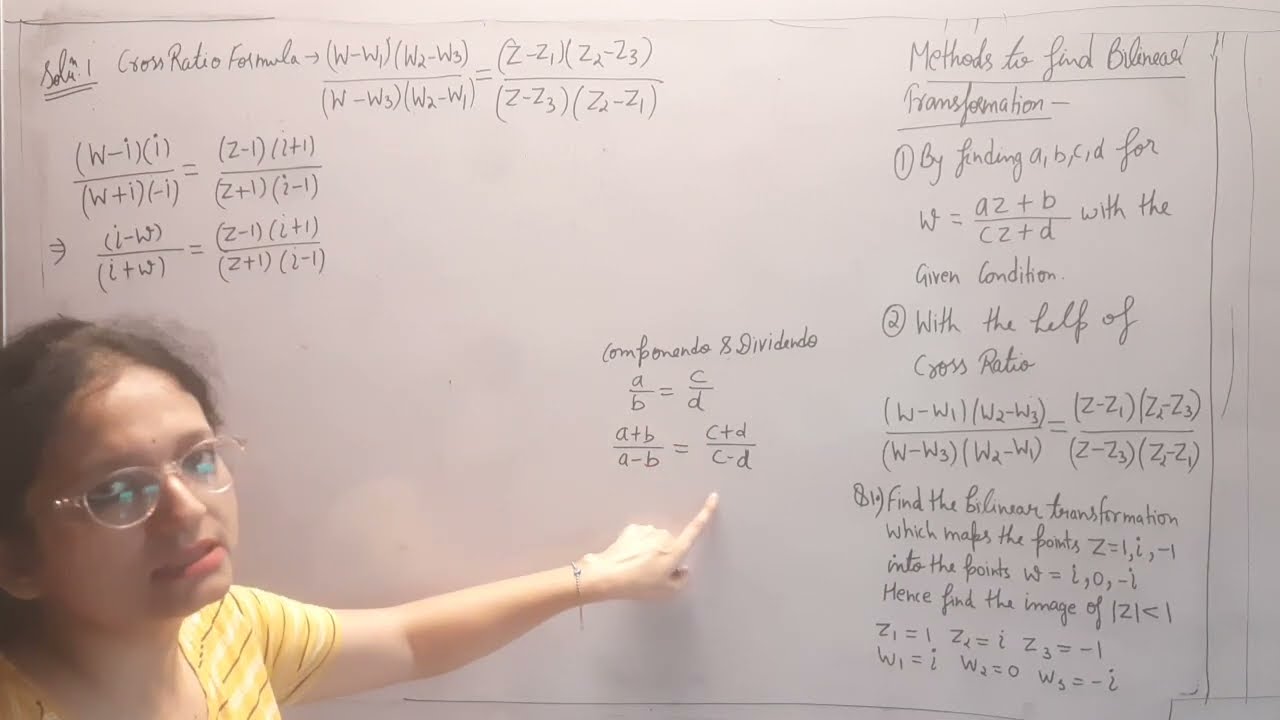 Soln: 1 Cross Ratio Formula → (W-W₁)(W₂-W₃)/(W-W₃)(W₂-W₁) = (Z-Z₁)(Z₂-Z₃)/(Z-Z₃)(Z₂-Z₁)
(W-i)(i)/(W+i)(-i) = (Z-1)(i+1)/(Z+1)(i-1)
⇒ (i-W)/(i+W) = (Z-1)(i+1)/(Z+1)(i-1)
Componendo & Dividendo
a/b = c/d
a+b/a-b = c+d/c-d
Methods to find Bilinear
Transformation –
① By finding a, b, c, d for
W = az+b/cz+d with the
Given Condition.
② With the help of
Cross Ratio
(W-W₁)(W₂-W₃)/(W-W₃)(W₂-W₁) = (Z-Z₁)(Z₂-Z₃)/(Z-Z₃)(Z₂-Z₁)
Q1.) Find the bilinear transformation
which maps the points Z=1, i, -1
into the points W = i, 0, -i
Hence find the image of |Z|<1
Z₁=1 Z₂=i Z₃=-1
W₁=i W₂=0 W₃=-i